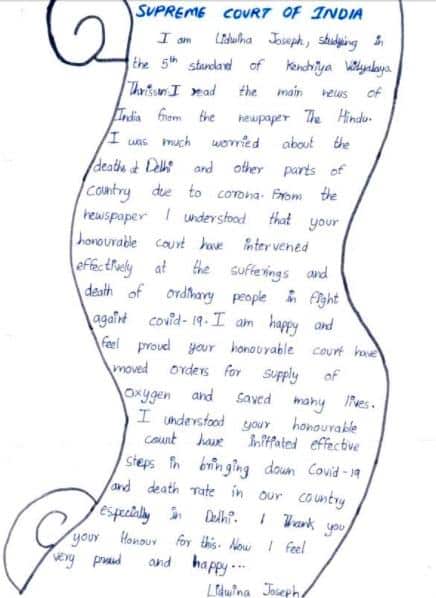 SUPREME COURT OF INDIA
I am Lidwina Joseph, studying in
the 5th standard of Kendriya Vidyalaya
Thrissur. I read the main news of
India from the newpaper The Hindu.
I was much worried about the
deaths at Delhi and other parts of
country due to corona. From the
newspaper I understood that your
honourable court have intervened
effectively at the sufferings and
death of ordinary people in fight
againt covid-19. I am happy and
feel proud your honourable court have
moved orders for supply of
oxygen and saved many lives.
I understood your honourable
court have initiated effective
steps in bringing down Covid-19
and death rate in our country
especially in Delhi. I thank you
your Honour for this. Now I feel
very proud and happy...
Lidwina Joseph